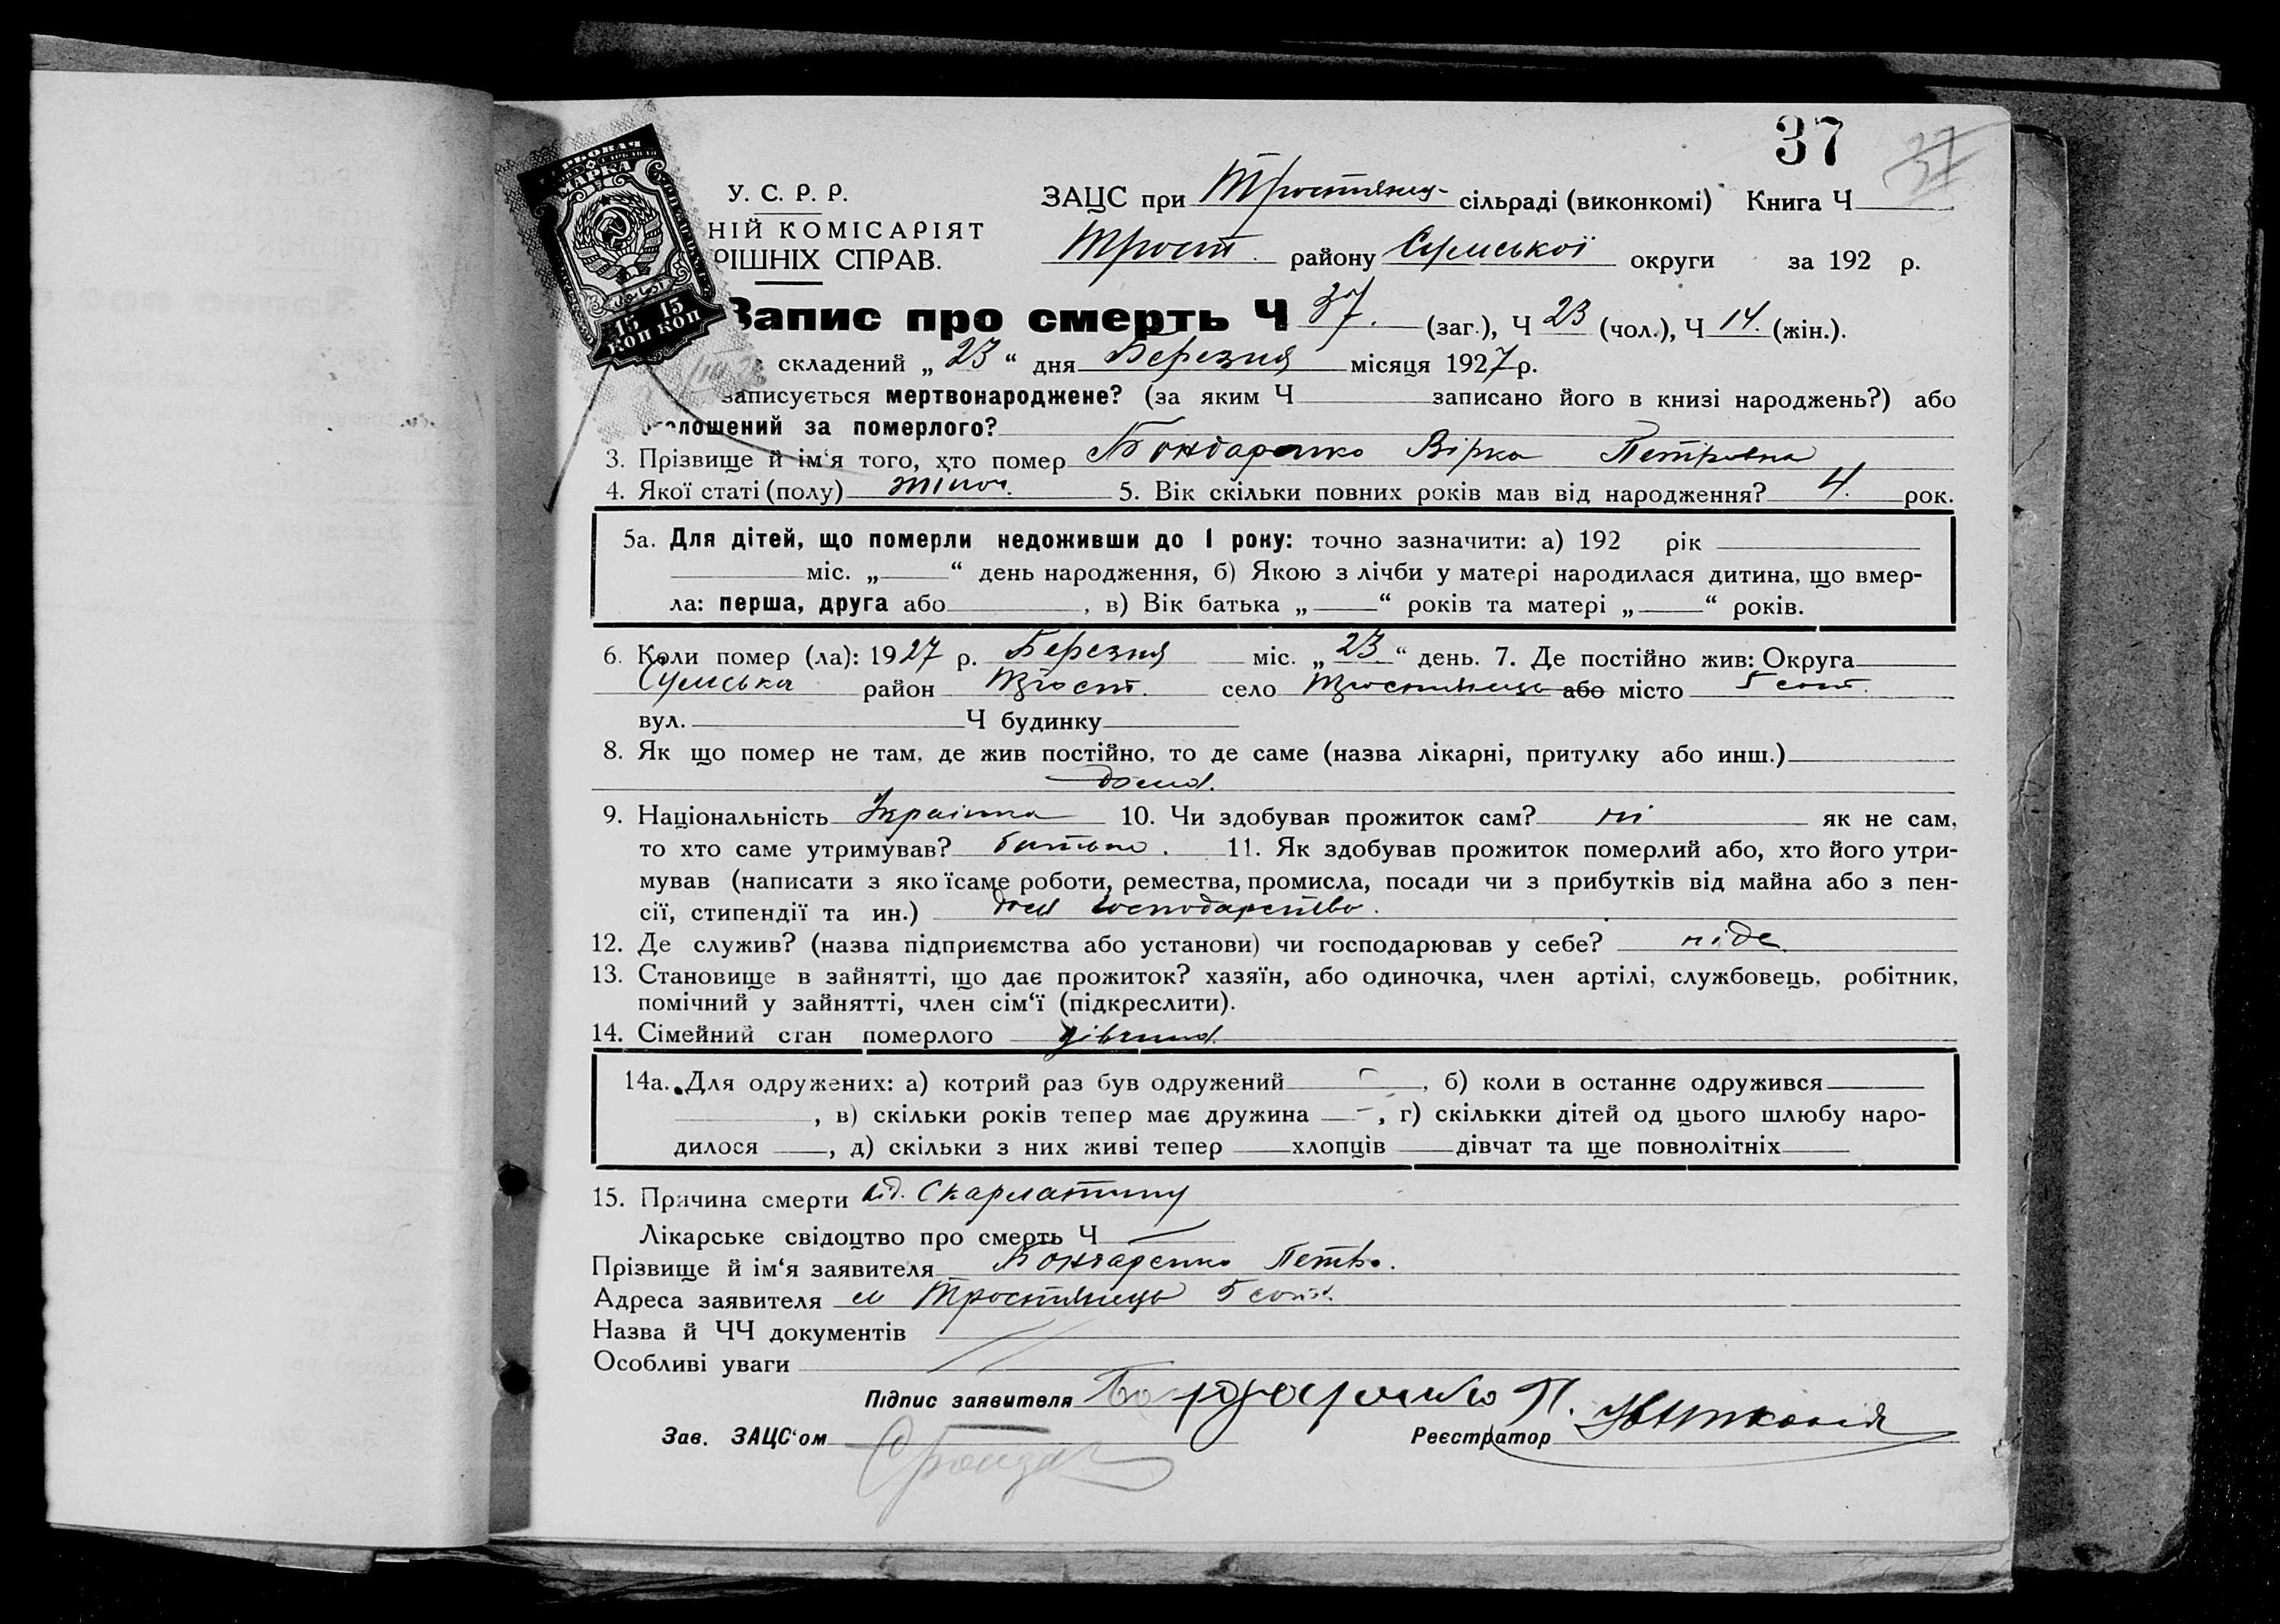 37
37
У. С. Р. Р.
ЗАЦС при Тростянец- сільраді (виконкомі) Книга Ч
НІЙ КОМІСАРІЯТ
РІШНІХ СПРАВ.
Трост. району Сумської округи за 192 р.
МАРКА
15 15
КОП КОП
Запис про смерть Ч 37. (заг.), Ч 23 (чол.), Ч 14. (жін.).
складений „ 23 “ дня Березня місяця 1927 р.
записується мертвонароджене? (за яким Ч записано його в книзі народжень?) або
лошений за померлого?
3. Прізвище й ім‘я того, хто помер Бондаренко Вірка Петровна
4. Якої статі (полу) жіноч. 5. Вік скільки повних років мав від народження? 4. рок.
5а. Для дітей, що померли недоживши до 1 року: точно зазначити: а) 192 рік
міс. „ “ день народження, б) Якою з лічби у матері народилася дитина, що вмер-
ла: перша, друга або , в) Вік батька „ “ років та матері „ “ років.
6. Коли помер (ла): 1927 р. Березня міс. „ 23 “ день. 7. Де постійно жив: Округа
Сумська район Трост. село Тростянець або місто 5 сот.
вул. Ч будинку
8. Як що помер не там, де жив постійно, то де саме (назва лікарні, притулку або инш.)
дома.
9. Національність Українка 10. Чи здобував прожиток сам? ні як не сам,
то хто саме утримував? батько. 11. Як здобував прожиток померлий або, хто його утри-
мував (написати з яко їсаме роботи, ремества, промисла, посади чи з прибутків від майна або з пен-
сії, стипендії та ин.) господарство.
12. Де служив? (назва підприємства або установи) чи господарював у себе? ніде
13. Становище в зайнятті, що дає прожиток? хазяїн, або одиночка, член артілі, службовець, робітник,
помічний у зайнятті, член сім‘ї (підкреслити).
14. Сімейний стан померлого дівчина.
14а. Для одружених: а) котрий раз був одружений , б) коли в останнє одружився
, в) скільки років тепер має дружина - , г) скількки дітей од цього шлюбу наро-
дилося , д) скільки з них живі тепер хлопців дівчат та ще повнолітніх
15. Причина смерти від. Скарлатини
Лікарське свідоцтво про смерть Ч
Прізвище й ім‘я заявителя Бондаренко Петро.
Адреса заявителя м Тростянець 5 сотн.
Назва й ЧЧ документів
Особливі уваги
Підпис заявителя Бондаренко П.
Зав. ЗАЦС‘ом
Реєстратор